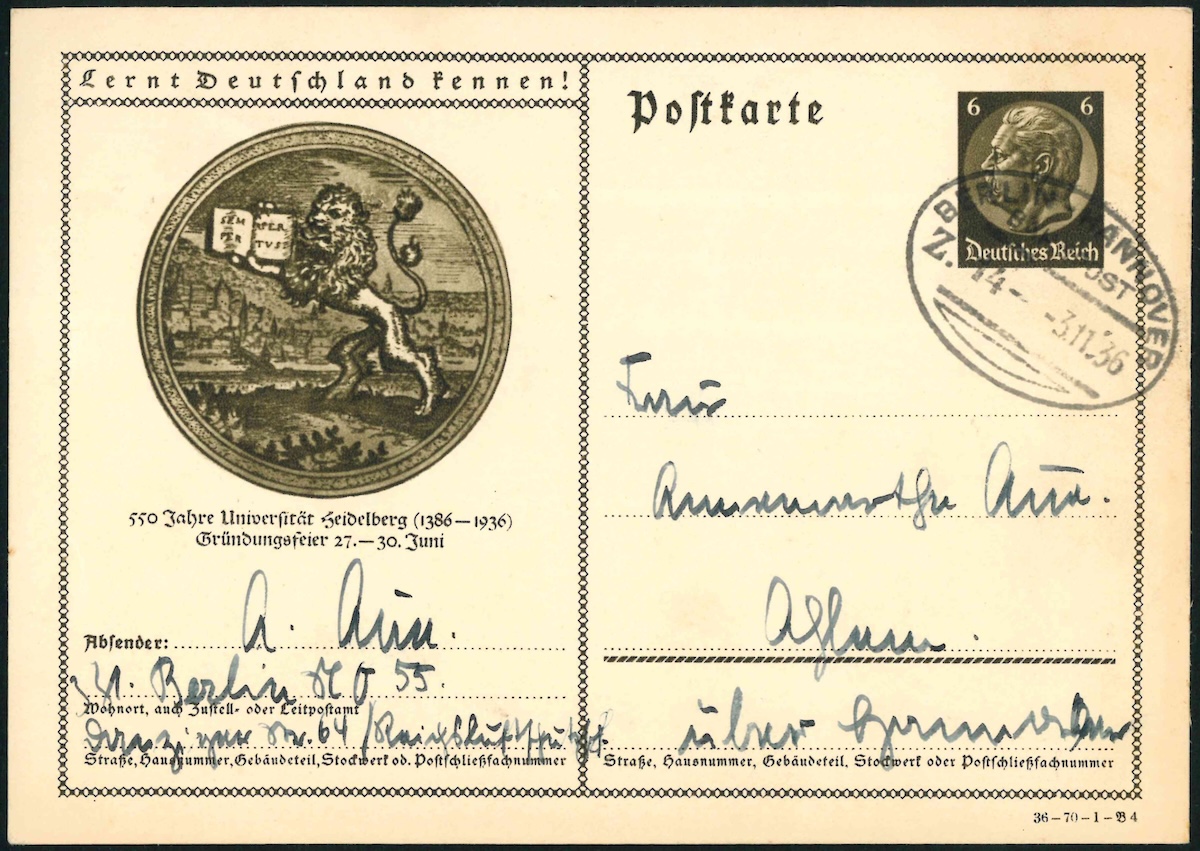 Lernt Deutschland kennen!
SEM
PER
APER
TVS
550 Jahre Universität Heidelberg (1386—1936)
Gründungsfeier 27.—30. Juni
Absender: A.
Berlin NO 55.
Wohnort, auch Zustell- oder Leitpostamt
Danziger Str. 64 / Reichsluftschutzsch.
Straße, Hausnummer, Gebäudeteil, Stockwerk od. Postschließfachnummer
Postkarte
6 6
Deutsches Reich
BERLIN HANNOVER
BAHNPOST
Z. 14
-3.11.36
Frau
über
Straße, Hausnummer, Gebäudeteil, Stockwerk oder Postschließfachnummer
36—70—1—B 4